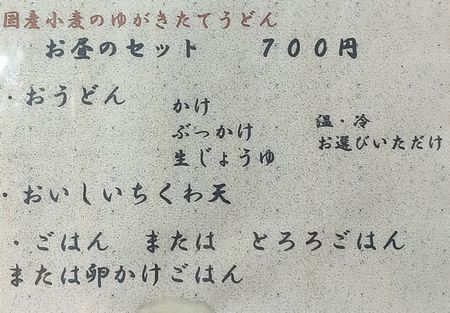 国産小麦のゆがきたてうどん
お昼のセット 700円
・おうどん
かけ
ぶっかけ
生じょうゆ
温・冷
お選びいただけ
・おいしいちくわ天
・ごはん または とろろごはん
または卵かけごはん